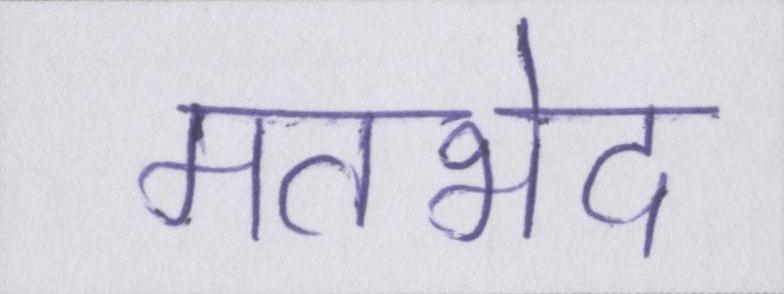 मतभेद